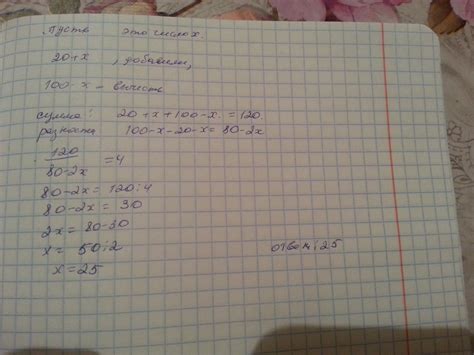 Пусть это число x.
20+x , добавили,
100-x - вычесть
сумма: 20+x+100-x = 120.
разность 100-x-20-x = 80-2x
120/(80-2x) = 4
80-2x = 120:4
80-2x = 30
2x = 80-30
x = 50:2
x = 25
ответ: 25